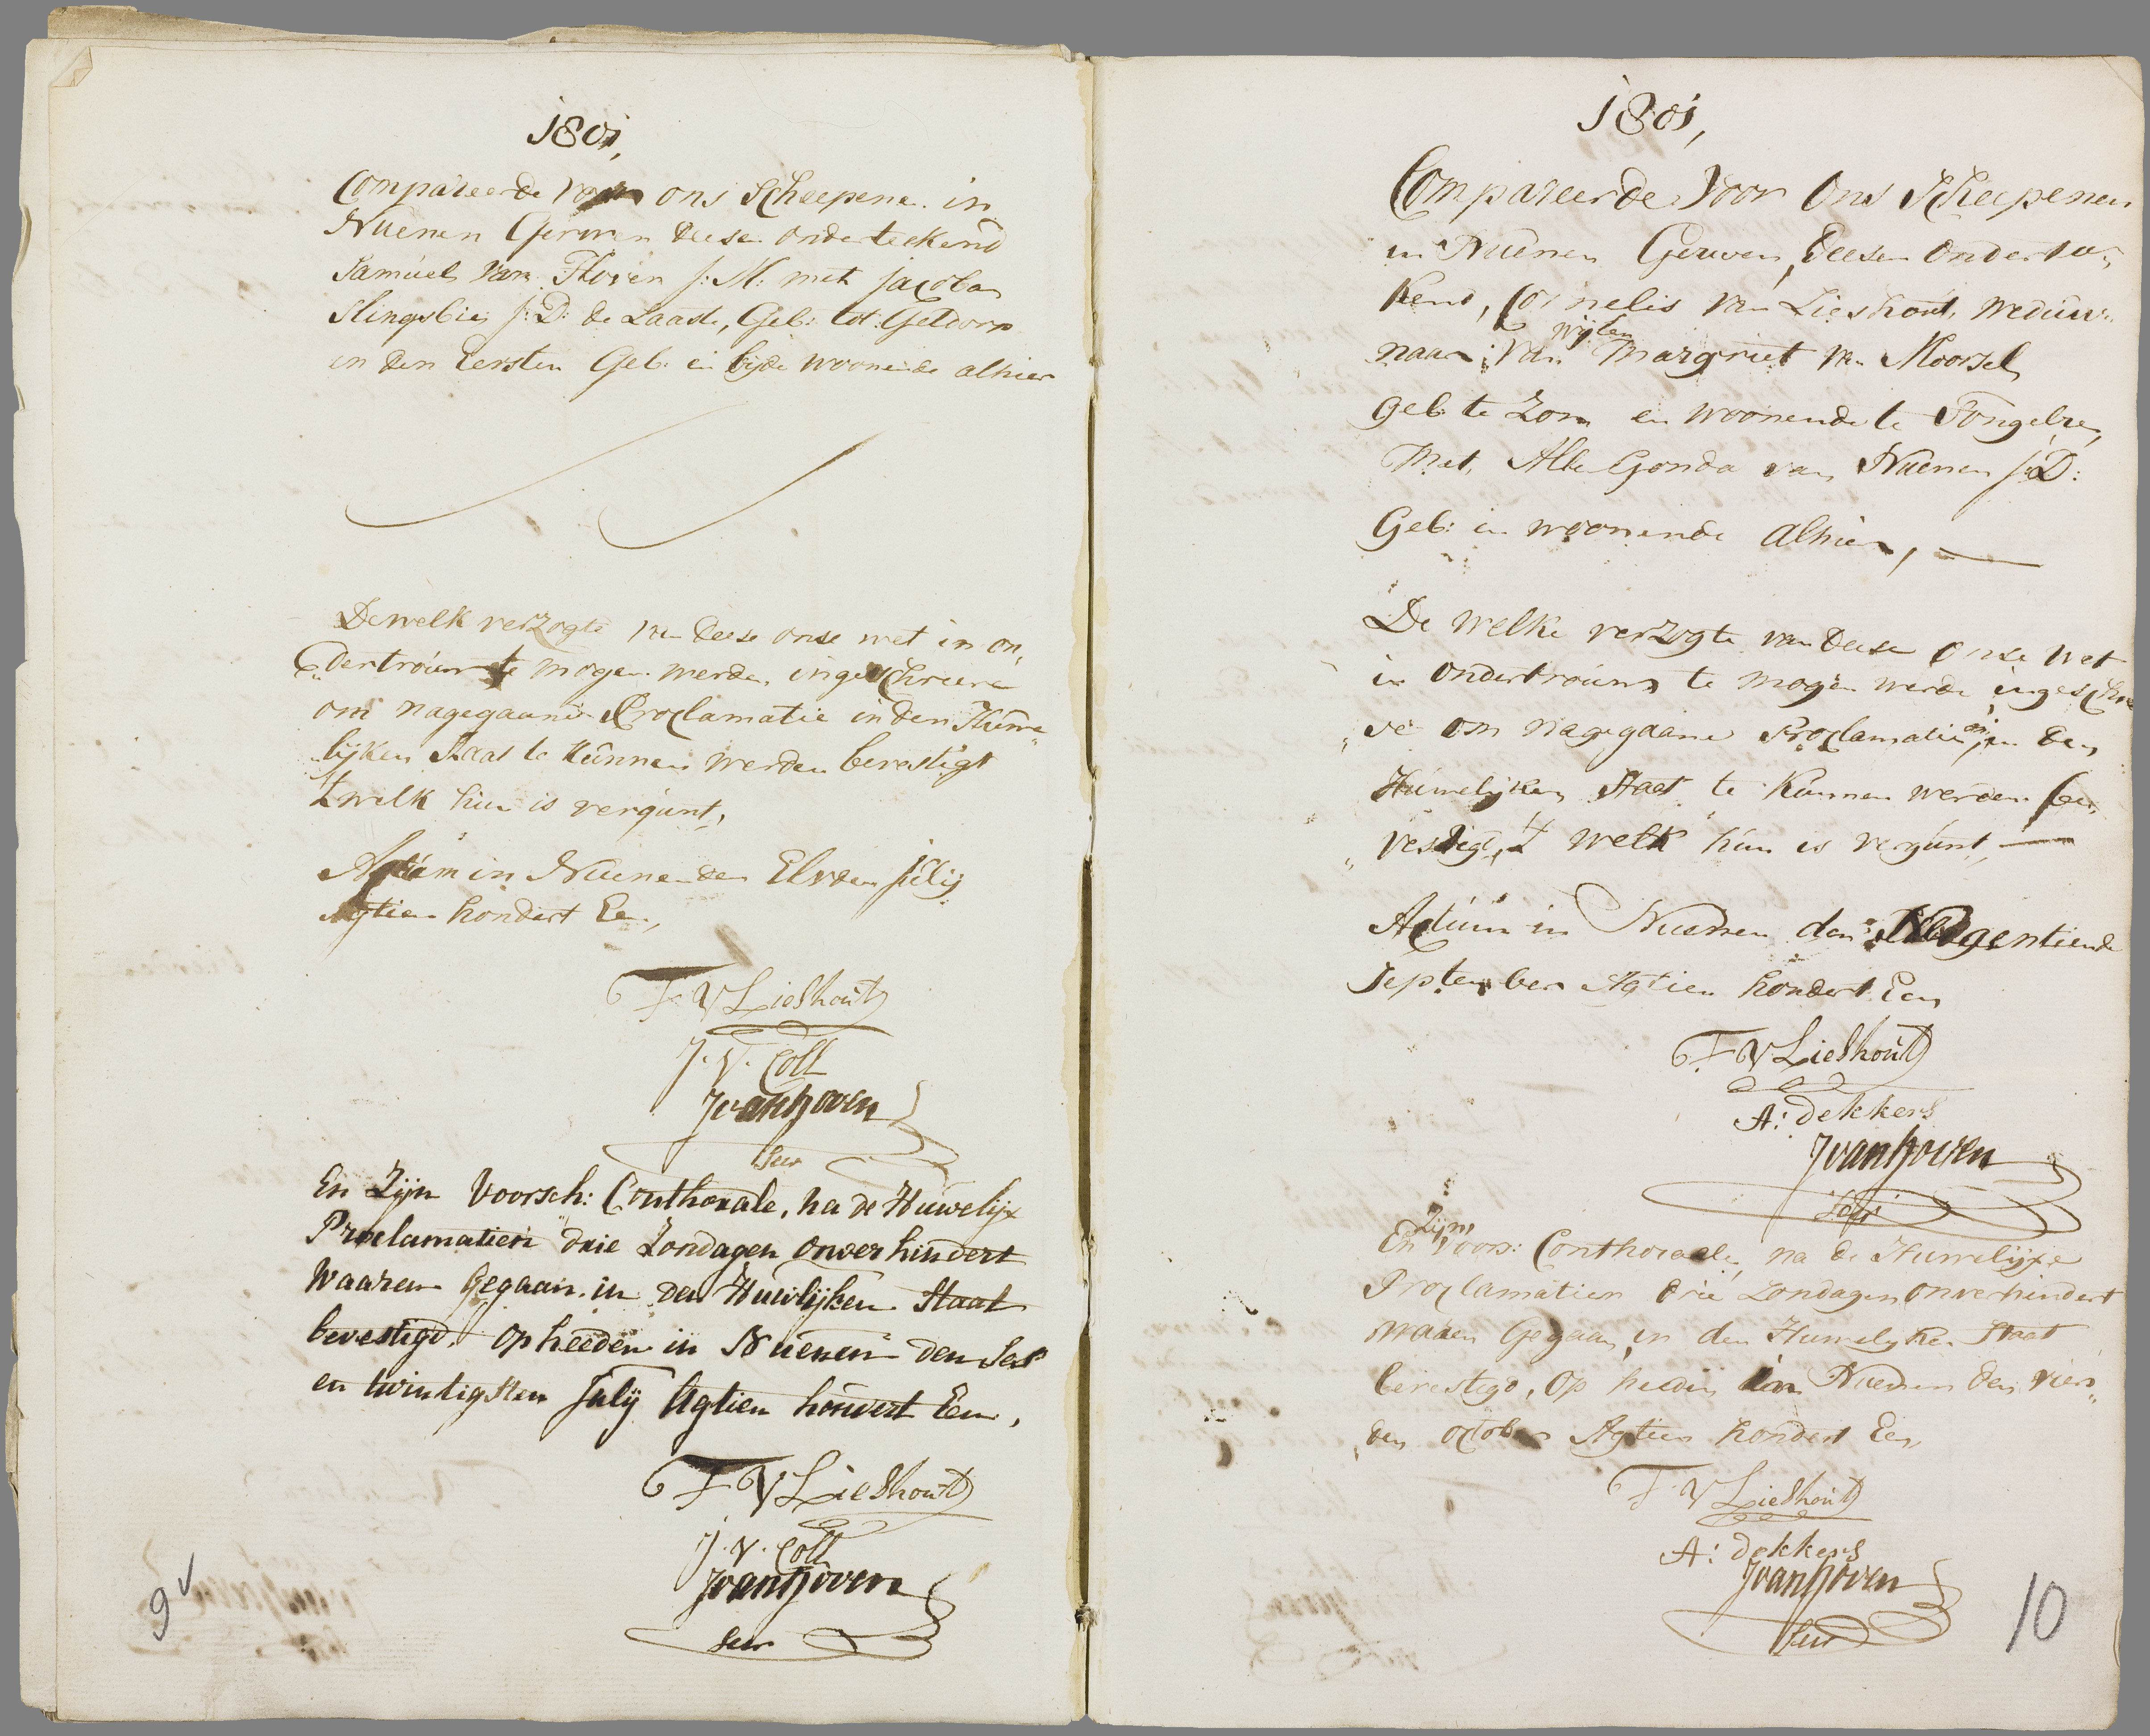 1801,
Compareerde voor ons Scheepene in
Nuenen Gerwen deesen onderteekend
Samuel van Hoven J: M: met Jacoba
Slingsbie J: D: de Laaste, Geb: tot Geldorp
en den Eersten Geb: en bijde woonende alhier
De welk verzogte van deese onse wet in on„
„dertrouw te mogen werden ingeschreve
om nagegaane Proclamatie in den Huwe„
lijken Staat te kunnen werden bevestigt
t welk hun is vergunt,
Actum in Nuenen den Elvden Julij
Agtien hondert Een,
F V Lieshout
J. V. Coll
JvanHoven
Secr
En Zijn Voorsch: Conthorale, na de Huwelijx
Proclamatien drie Zondagen onverhindert
waaren gegaan in den Huwlijken Staat
bevestigd, op heeden in Nuenen den Ses
en twintigsten Julij Agtien hondert Een,
F V Lieshout
J. V. Coll
JvanHoven
Secr
9v
1801,
Compareerde Voor Ons Scheepenen
in Nuenen Gerwen, deesen ondertee„
kend, Cornelis van Lieshout, weduwe
naar van wijlen Margriet van Moorsel
geb: te Zon en woonende te Tongelre,
Met, Alle Gonda van Nuenen J: D:
Geb: en woonende alhier,
De welke verzogte van deese onse wet
in ondertrouw te mogen werde ingeschre
„ve om nagegaane Proclamatien in den
Huwelijken Staat te kunnen werden be„
„vestigt, t welk hun is vergunt,
Actum in Nuenen den Negentiende
September Agtien hondert Een
F V Lieshout
A: dekkers
JvanHoven
Secr
En Zijn voors: Conthoraale, na de Huwelijxe
Proclamatien drie Zondagen onverhindert
waren Gegaan, in den Huwelyken Staat
bevestigd, Op heeden in Nuenen den vier„
„den october Agtien hondert Een,
F V Lieshout
A: dekkers
JvanHoven
Secr
10